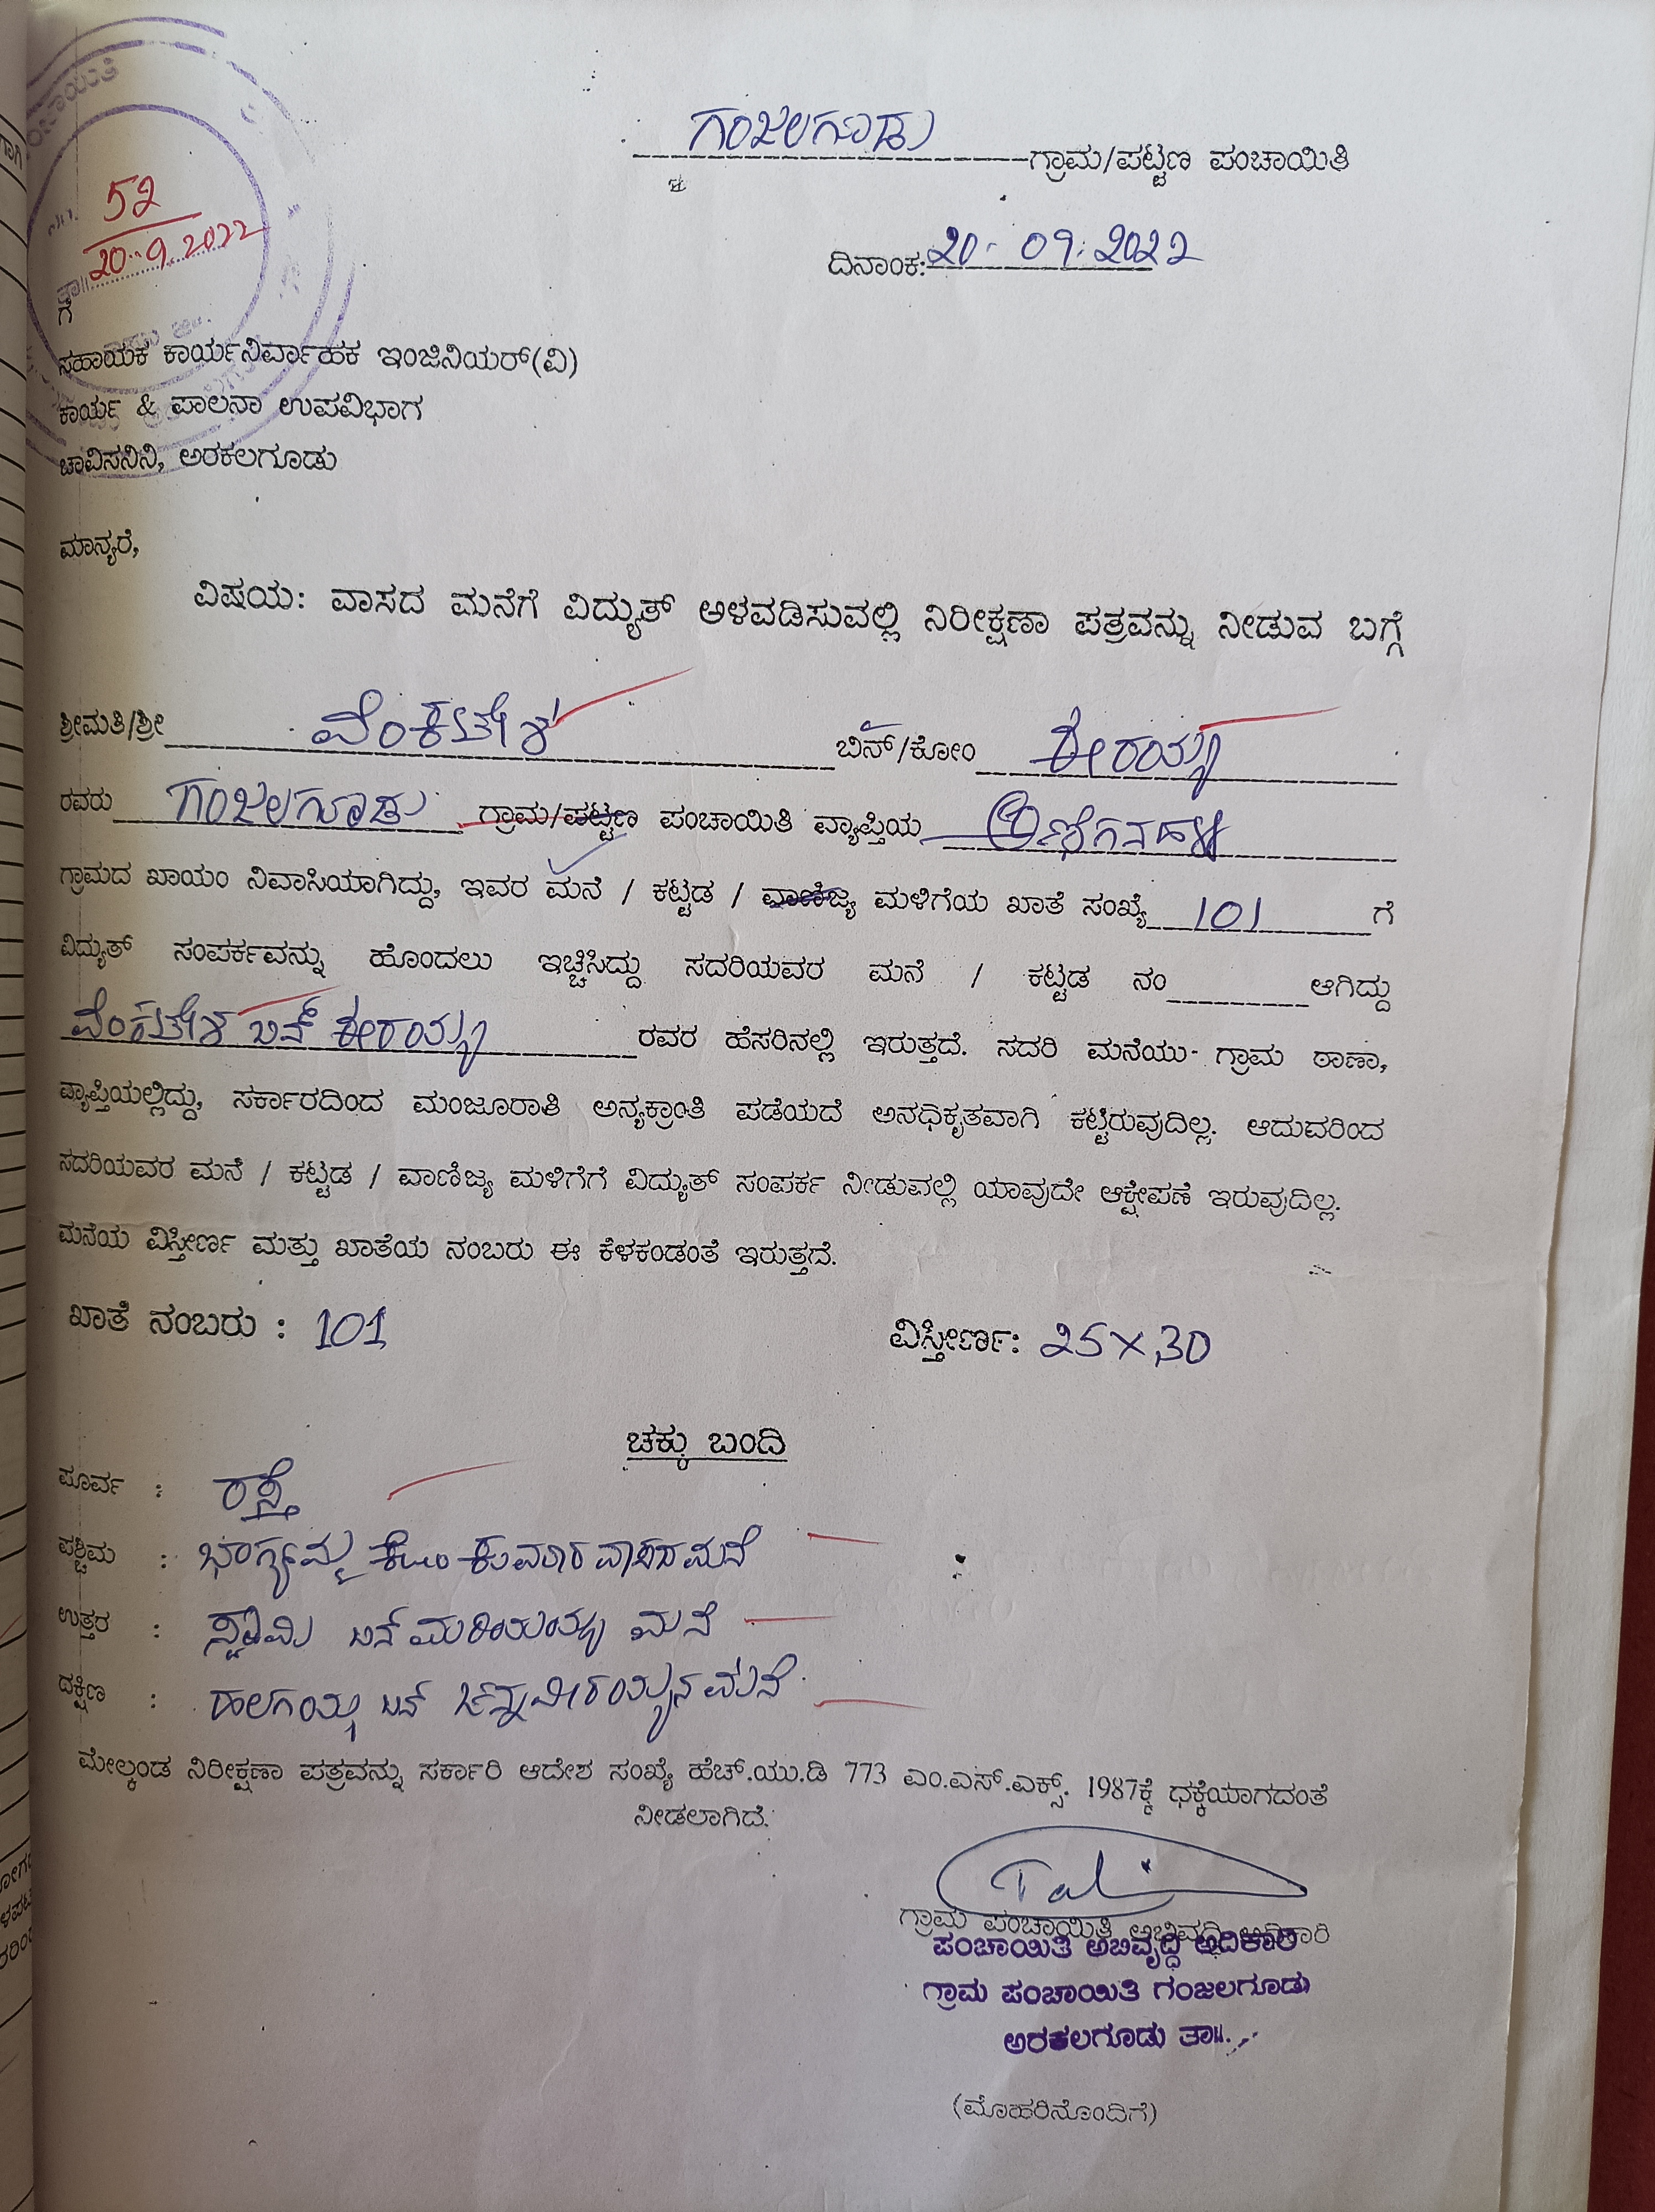 ಗಂಜಲಗೂಡು ಗ್ರಾಮ/ಪಟ್ಟಣ ಪಂಚಾಯಿತಿ
ದಿನಾಂಕ: 20-09-2022
52
20-9-2022
ಗೆ
ಸಹಾಯಕ ಕಾರ್ಯನಿರ್ವಾಹಕ ಇಂಜಿನಿಯರ್(ವಿ)
ಕಾರ್ಯ & ಪಾಲನಾ ಉಪವಿಭಾಗ
ಚಾವಿಸನಿನಿ, ಅರಕಲಗೂಡು
ಮಾನ್ಯರೆ,
ವಿಷಯ: ವಾಸದ ಮನೆಗೆ ವಿದ್ಯುತ್ ಅಳವಡಿಸುವಲ್ಲಿ ನಿರೀಕ್ಷಣಾ ಪತ್ರವನ್ನು ನೀಡುವ ಬಗ್ಗೆ
ಶ್ರೀಮತಿ/ಶ್ರೀ ವೆಂಕಟೇಶ ಬಿನ್/ಕೋಂ ಈರಯ್ಯ
ರವರು ಗಂಜಲಗೂಡು ಗ್ರಾಮ/ಪಟ್ಟಣ ಪಂಚಾಯಿತಿ ವ್ಯಾಪ್ತಿಯ
ಗ್ರಾಮದ ಖಾಯಂ ನಿವಾಸಿಯಾಗಿದ್ದು, ಇವರ ಮನೆ / ಕಟ್ಟಡ / ವಾಣಿಜ್ಯ ಮಳಿಗೆಯ ಖಾತೆ ಸಂಖ್ಯೆ 101 ಗೆ
ವಿದ್ಯುತ್ ಸಂಪರ್ಕವನ್ನು ಹೊಂದಲು ಇಚ್ಚಿಸಿದ್ದು ಸದರಿಯವರ ಮನೆ / ಕಟ್ಟಡ ನಂ ಆಗಿದ್ದು
ವೆಂಕಟೇಶ ಬಿನ್ ಈರಯ್ಯ ರವರ ಹೆಸರಿನಲ್ಲಿ ಇರುತ್ತದೆ. ಸದರಿ ಮನೆಯು ಗ್ರಾಮ ಠಾಣಾ,
ವ್ಯಾಪ್ತಿಯಲ್ಲಿದ್ದು, ಸರ್ಕಾರದಿಂದ ಮಂಜೂರಾತಿ ಅನ್ಯಕ್ರಾಂತಿ ಪಡೆಯದೆ ಅನಧಿಕೃತವಾಗಿ ಕಟ್ಟಿರುವುದಿಲ್ಲ. ಆದುವರಿಂದ
ಸದರಿಯವರ ಮನೆ / ಕಟ್ಟಡ / ವಾಣಿಜ್ಯ ಮಳಿಗೆಗೆ ವಿದ್ಯುತ್ ಸಂಪರ್ಕ ನೀಡುವಲ್ಲಿ ಯಾವುದೇ ಆಕ್ಷೇಪಣೆ ಇರುವುದಿಲ್ಲ.
ಮನೆಯ ವಿಸ್ತೀರ್ಣ ಮತ್ತು ಖಾತೆಯ ನಂಬರು ಈ ಕೆಳಕಂಡಂತೆ ಇರುತ್ತದೆ.
ಖಾತೆ ನಂಬರು : 101 ವಿಸ್ತೀರ್ಣ: 25×30
ಚಕ್ಕು ಬಂದಿ
ಪೂರ್ವ : ರಸ್ತೆ
ಪಶ್ಚಿಮ : ಭಾಗ್ಯಮ್ಮ ಕೋಂ ಕುಮಾರ ಮನೆ
ಉತ್ತರ : ಸ್ವಾಮಿ ಬಿನ್ ಮರಿಯಯ್ಯ ಮನೆ
ದಕ್ಷಿಣ : ಹಲಗಯ್ಯ ಬಿನ್ ಚಿನ್ನವೀರಯ್ಯನ ಮನೆ
ಮೇಲ್ಕಂಡ ನಿರೀಕ್ಷಣಾ ಪತ್ರವನ್ನು ಸರ್ಕಾರಿ ಆದೇಶ ಸಂಖ್ಯೆ ಹೆಚ್.ಯು.ಡಿ 773 ಎಂ.ಎಸ್.ಎಕ್ಸ್. 1987ಕ್ಕೆ ಧಕ್ಕೆಯಾಗದಂತೆ
ನೀಡಲಾಗಿದೆ.
ಗ್ರಾಮ ಪಂಚಾಯಿತಿ ಅಭಿವೃದ್ಧಿ ಅಧಿಕಾರಿ
ಪಂಚಾಯಿತಿ ಅಭಿವೃದ್ಧಿ ಅಧಿಕಾರಿ
ಗ್ರಾಮ ಪಂಚಾಯಿತಿ ಗಂಜಲಗೂಡು
ಅರಕಲಗೂಡು ತಾ||.
(ಮೊಹರಿನೊಂದಿಗೆ)